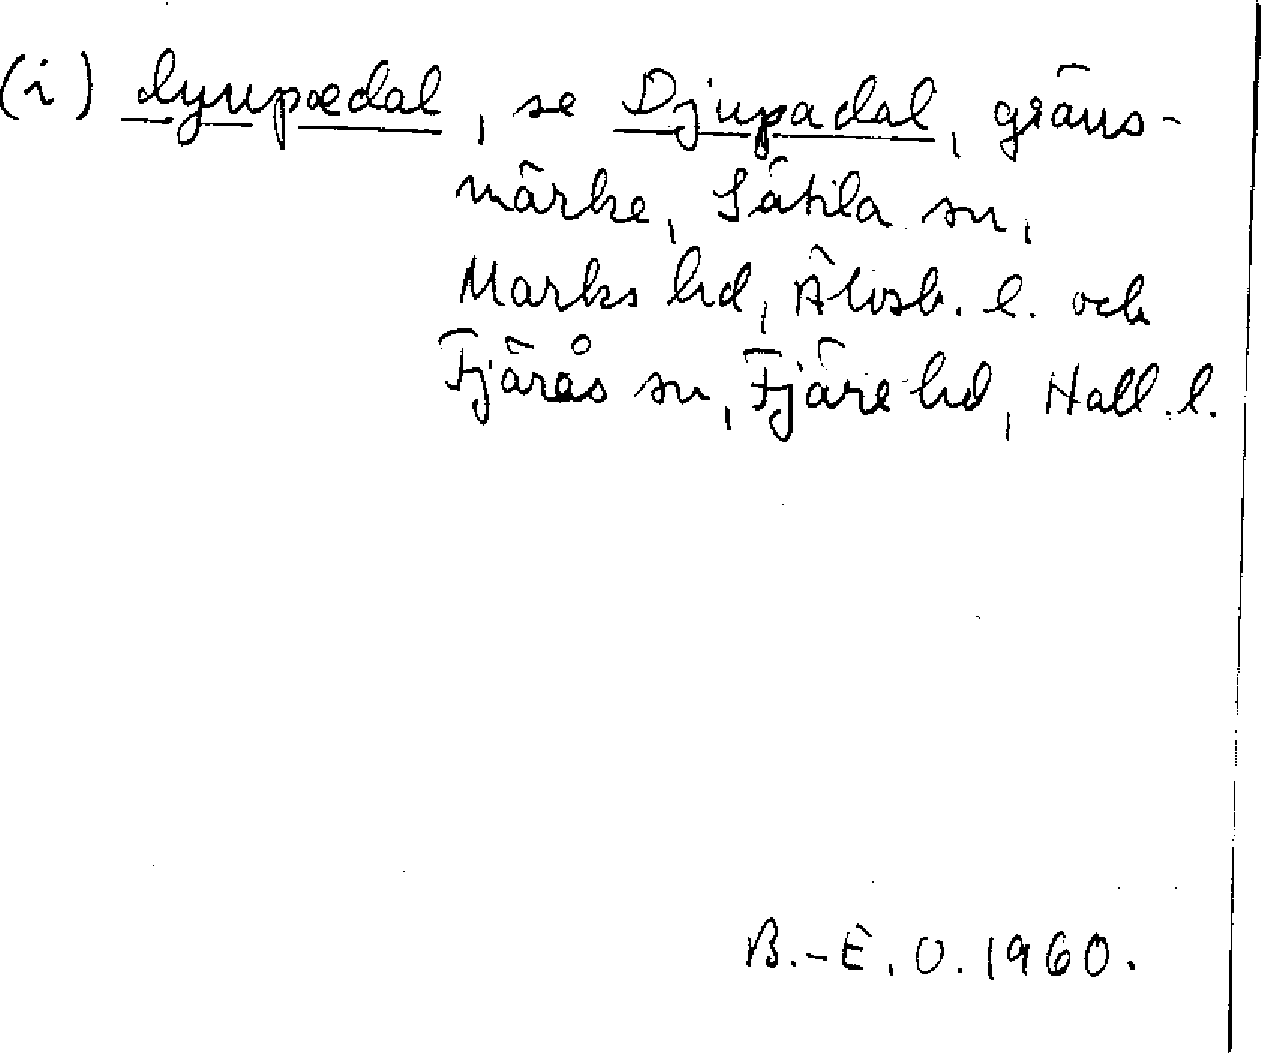 (i) dyupædal, se Djupadal, gräns-
märke, Sätila sn,
Marks hd, Älvsb. l. och
Fjärås sn, Fjäre hd, Hall. l.
B.-E. O. 1960.